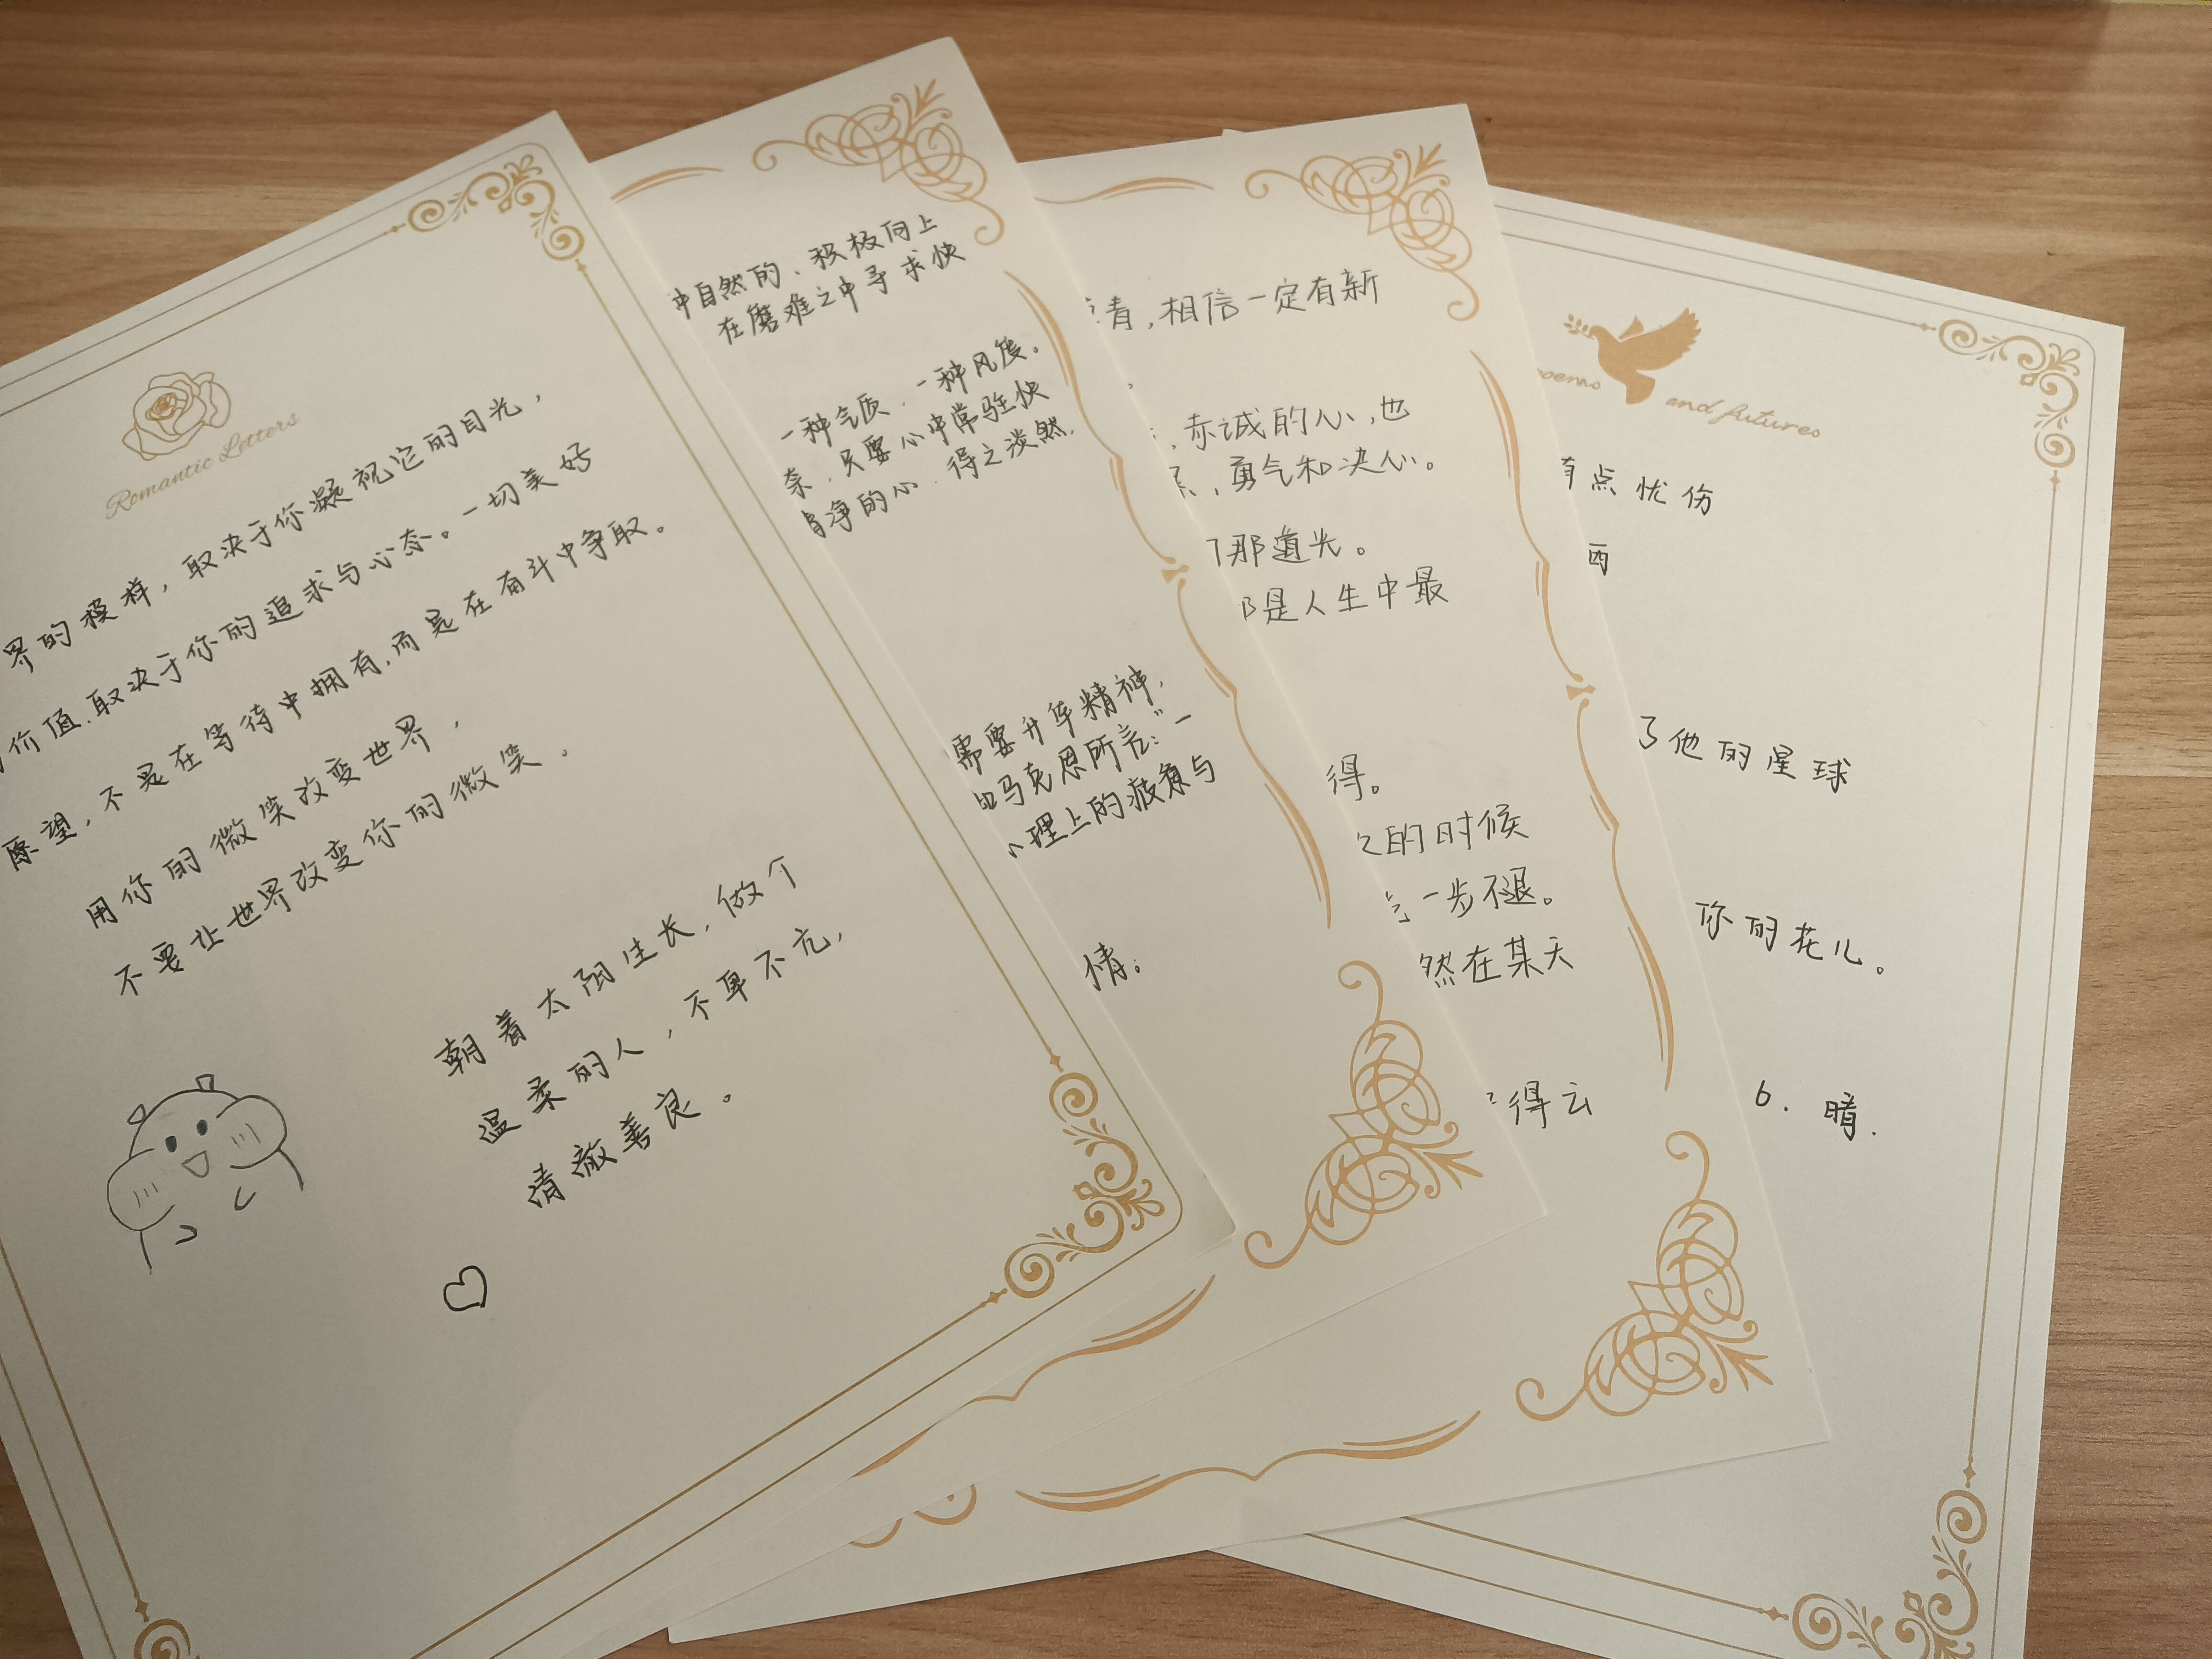 Romantic Letters
界的模样，取决于你凝视它的目光，
价值.取决于你的追求与心态。一切美好
愿望，不是在等待中拥有，而是在奋斗中争取。
用你的微笑改变世界，
不要让世界改变你的微笑。
朝着太阳生长，做个
温柔的人，不卑不亢，
清澈善良。
自然的、积极向上
在磨难之中寻求快
一种气质、一种风度。
奈，只要心中常驻快
净的心，得之淡然，
需要升华精神，
马克思所言："一
理上的疲惫与
情。
青，相信一定有新
，赤诚的心，也
，勇气和决心。
那道光。
是人生中最
得。
的时候
一步不退。
然在某天
得云
poems and futures
有点忧伤
西
了他的星球
你的花儿。
6. 晴.